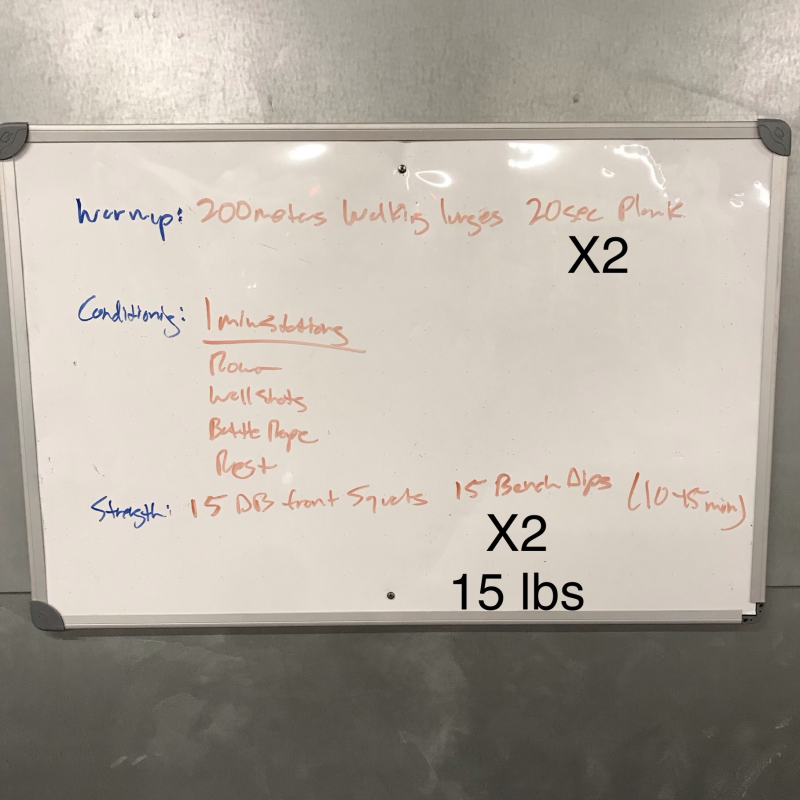 Warmup: 200 meters Walking lunges 20sec Plank
X2
Conditioning: 1 min stations
Row
Wall shots
Battle Rope
Rest
Strength: 15 DB front Squats 15 Bench Dips (10-15 min)
X2
15 lbs